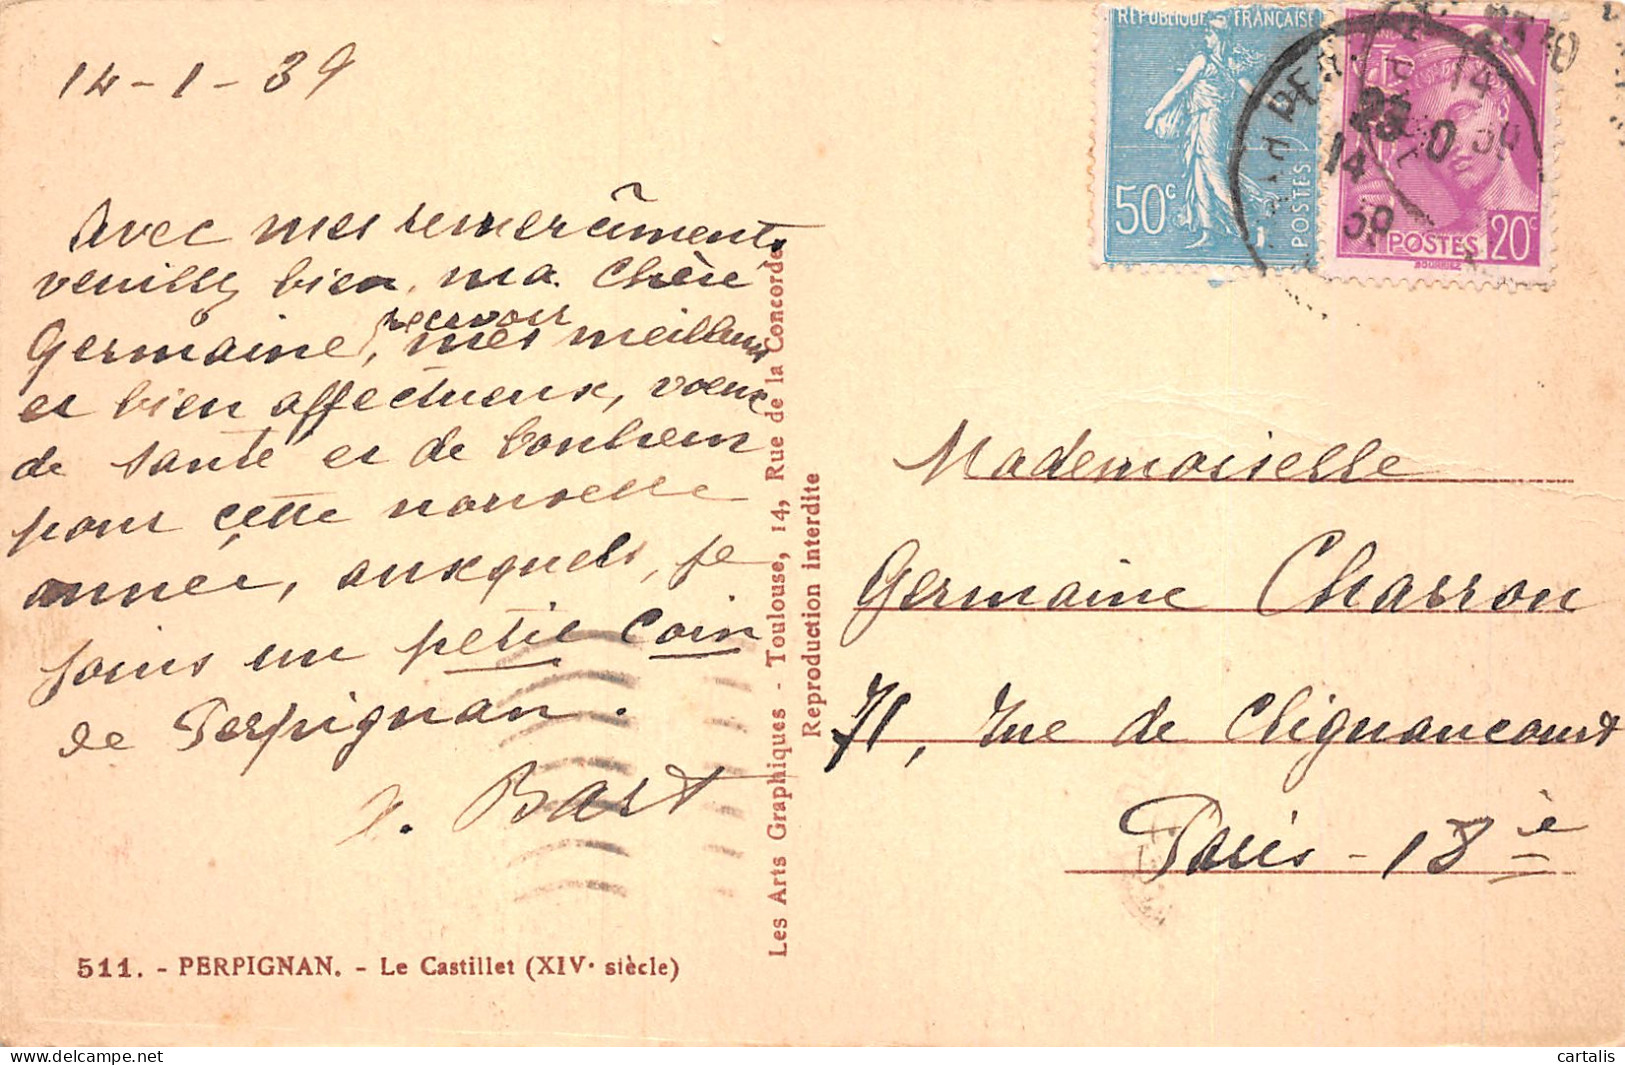 14-1-39
Avec mes remercîments
veuillez bien, ma chère
Germaine, recevoir mes meilleurs
et bien affectueux, vœux
de santé et de bonheur
pour cette nouvelle
année, auxquels, je
joins un petit coin
de Perpignan.
Bart
511. - PERPIGNAN. - Le Castillet (XIVe siècle)
Les Arts Graphiques - Toulouse, 14, Rue de la Concorde
Reproduction interdite
REPUBLIQUE FRANÇAISE
50c
POSTES
POSTES 20c
14
39
Mademoiselle
Germaine Charron
71, rue de Clignancourt
Paris - 18è
cartalis